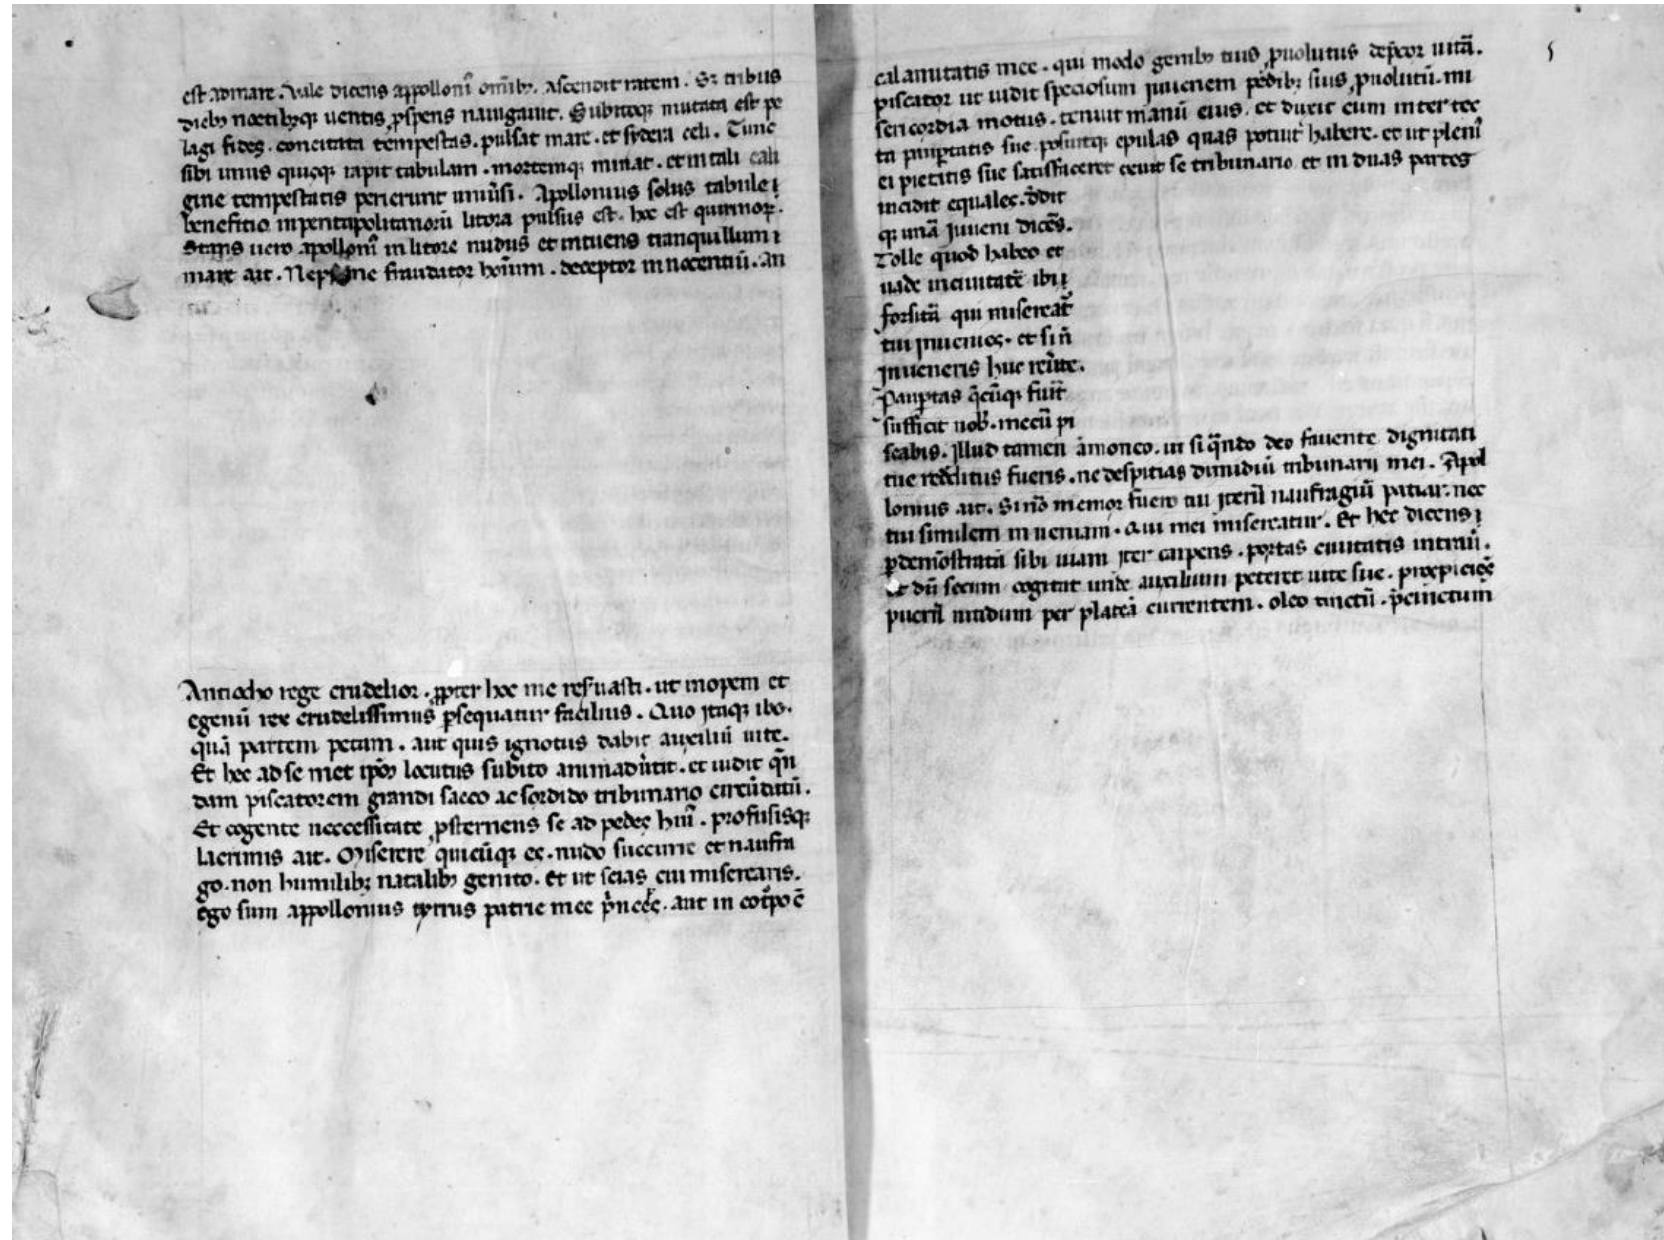 est ad mare. Vale dicens appolloni᷒ om̅ib᷒. ascendit ratem. Et tribus
dieb᷒ noctib᷒q; uentis ꝓsperis nauigauit. Subitoq; mutata est pe
lagi fides. concitata tempestas. pulsat mare. et sydera celi. Tunc
sibi unus quisq; rapit tabulam. mortemq; minat᷑. et in tali cali
gine tempestatis perierunt uniu̾si. Apollonius solus tabule
benefitio in pentapolitanorū litora pulsus est. hoc est quirinoꝝ.
Stans uero apolloni᷒ in litore nudus et intuens tranquillum
mare ait. Neptune fraudator hoīum. deceptor innocentiū. an
Antiocho rege crudelior. ꝓpter hoc me resuasti. ut inopem et
egenū rex crudelissimus ꝑsequatur facilius. Quo itaq; ibo.
quā partem petam. aut quis ignotus dabit auxiliū uite.
Et hec ad se met ip̄m locutus subito animadu̾tit. et uidit quē
dam piscatorem grandi sacco ac sordido tribunario circūdatū.
Et cogente neccessitate ꝓsternens se ad pedes hui᷒. profusisq;
lacrimis ait. Miserere quicūq; es. nudo succurre et naufra
go. non humilib; natalib᷒ genito. Et ut scias cui miserearis.
ego sum appollonius tyrius patrie mee p̾nceps. aut in cōt̾po ē
5
calamitatis mee. qui modo genib᷒ tuis ꝓuolutus dep̄cor uitā.
piscator ut uidit speciosum iuuenem pedib; suis ꝓuolutū. mi
sericordia motus. tenuit manū eius. et duxit eum inter tec
ta pauꝑtatis sue. posuitq; epulas quas potuit habere. et ut pleni᷒
ei pietatis sue satisfaceret exuit se tribunario et in duas partes
incidit equales. d̄dit
q; unā iuueni dicēs.
Tolle quod habeo et
uade in ciuitatē ibi
forsitā qui misereat᷑
tui inuenies. et si n̄
inueneris huc reu̾te.
Pauꝑtas q̄cūq; fuit̾
sufficit nob̾. mecū pi
scabis. Illud tamen āmoneo. ut si q̄ndo deo fauente dignitati
tue redditus fueris. ne despitias dimidiū tribunarii mei. Apol
lonius ait. Si nō memor fuero tui iterū naufragiū patiar. nec
tui similem inueniam. qui mei misereatur. Et hec dicens
ꝑ demōstratā sibi uiam iter carpens. portas ciuitatis intrauit.
Et dū secum cogitat unde auxilium peteret uite sue. prospicies
puerū nudum per plateā currentem. oleo tinctū. p̄cinctum